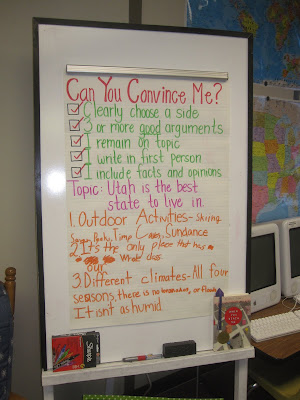 Can You Convince Me?
Clearly choose a side
3 or more good arguments
I remain on topic
I write in first person
I include facts and opinions.
Topic: Utah is the best
state to live in.
1. Outdoor Activities- Skiing
Sundance
2. It's the only place that has
our whole class
3. Different climates- All four
seasons, there is no or
It isnt as humid.
Sharpie